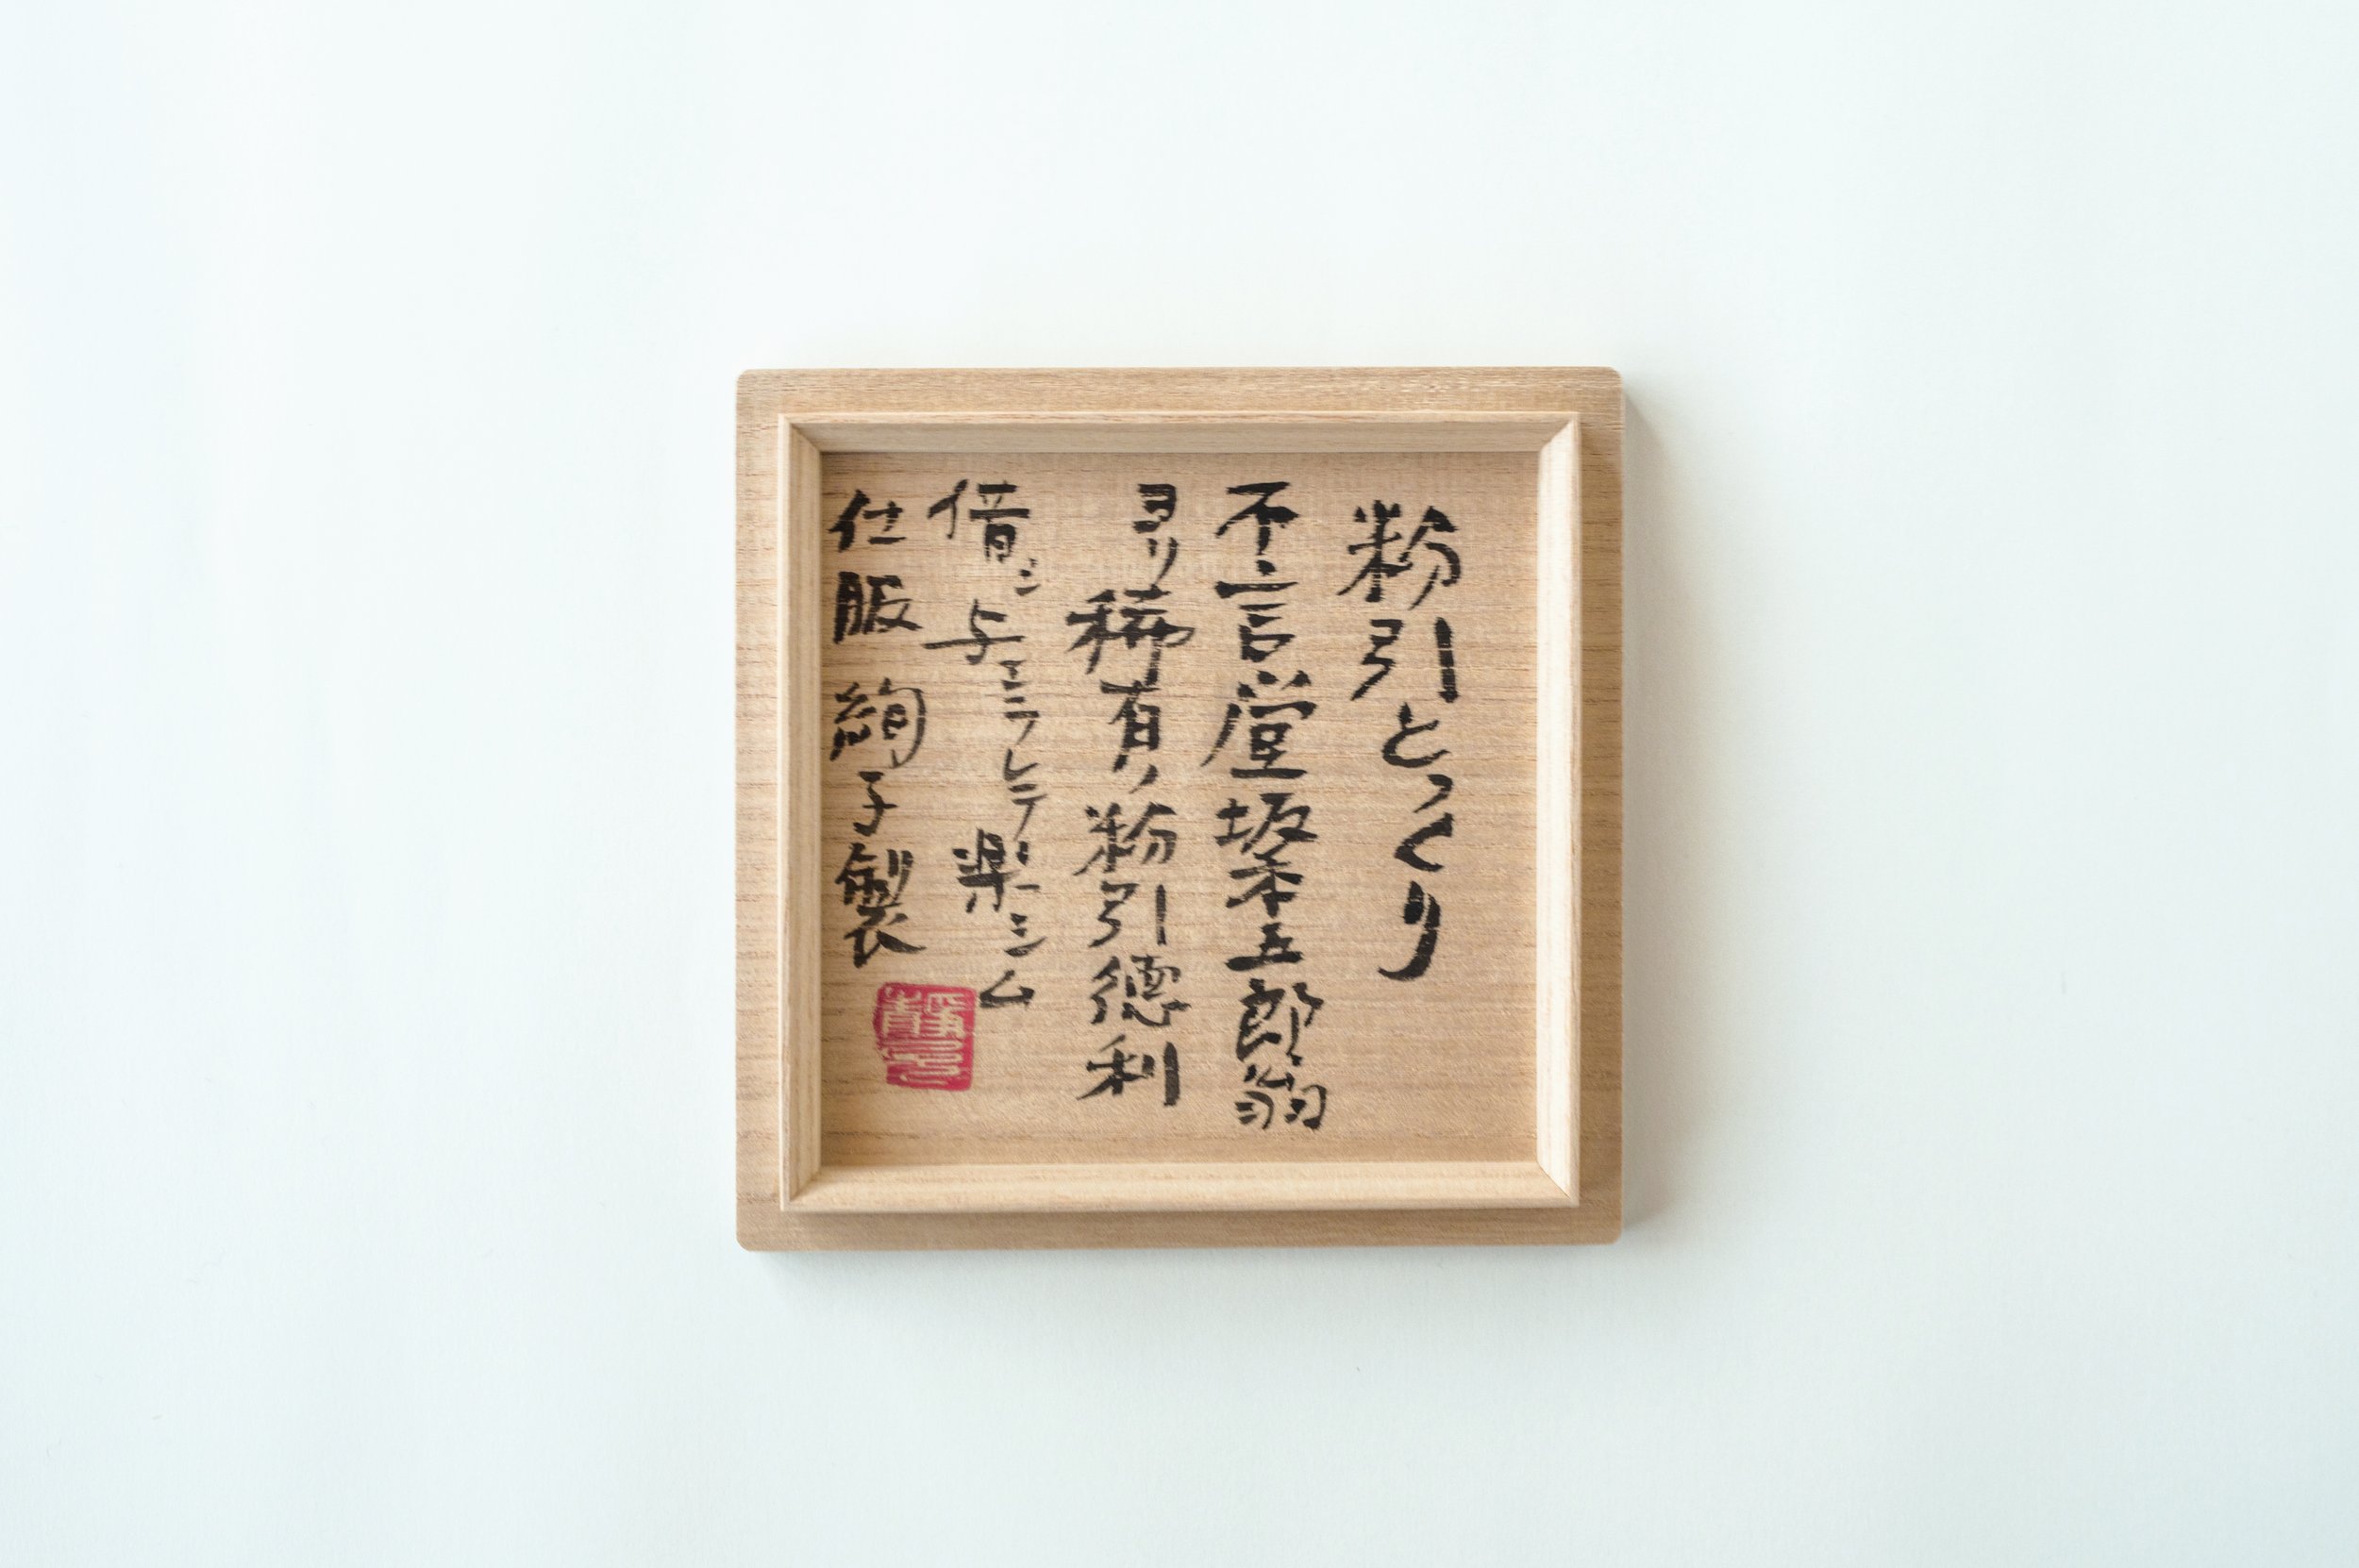 粉引とっくり
不言堂坂本五郎翁
ヨリ稀有ノ粉引徳利
借シ与エラレテ楽シム
仕服 絢子製